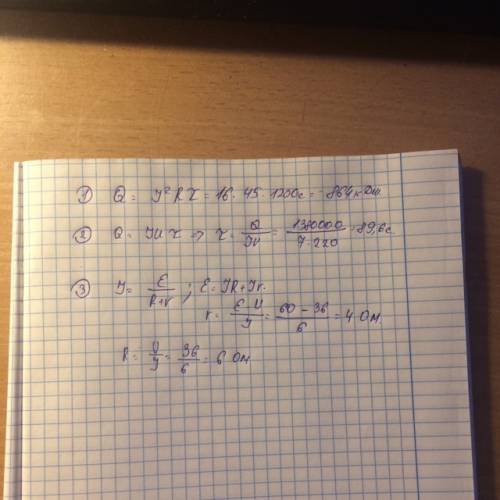 ① Q = I²Rτ = 16 · 45 · 1200c = 864 кДж
② Q = IUτ => τ = Q/IU = 1380000/7·220 = 89,6 c
③ I = ε/R+r ; ε = IR + Ir.
r = ε-U/I = 60-36/6 = 4 Ом
R = U/I = 36/6 = 6 Ом